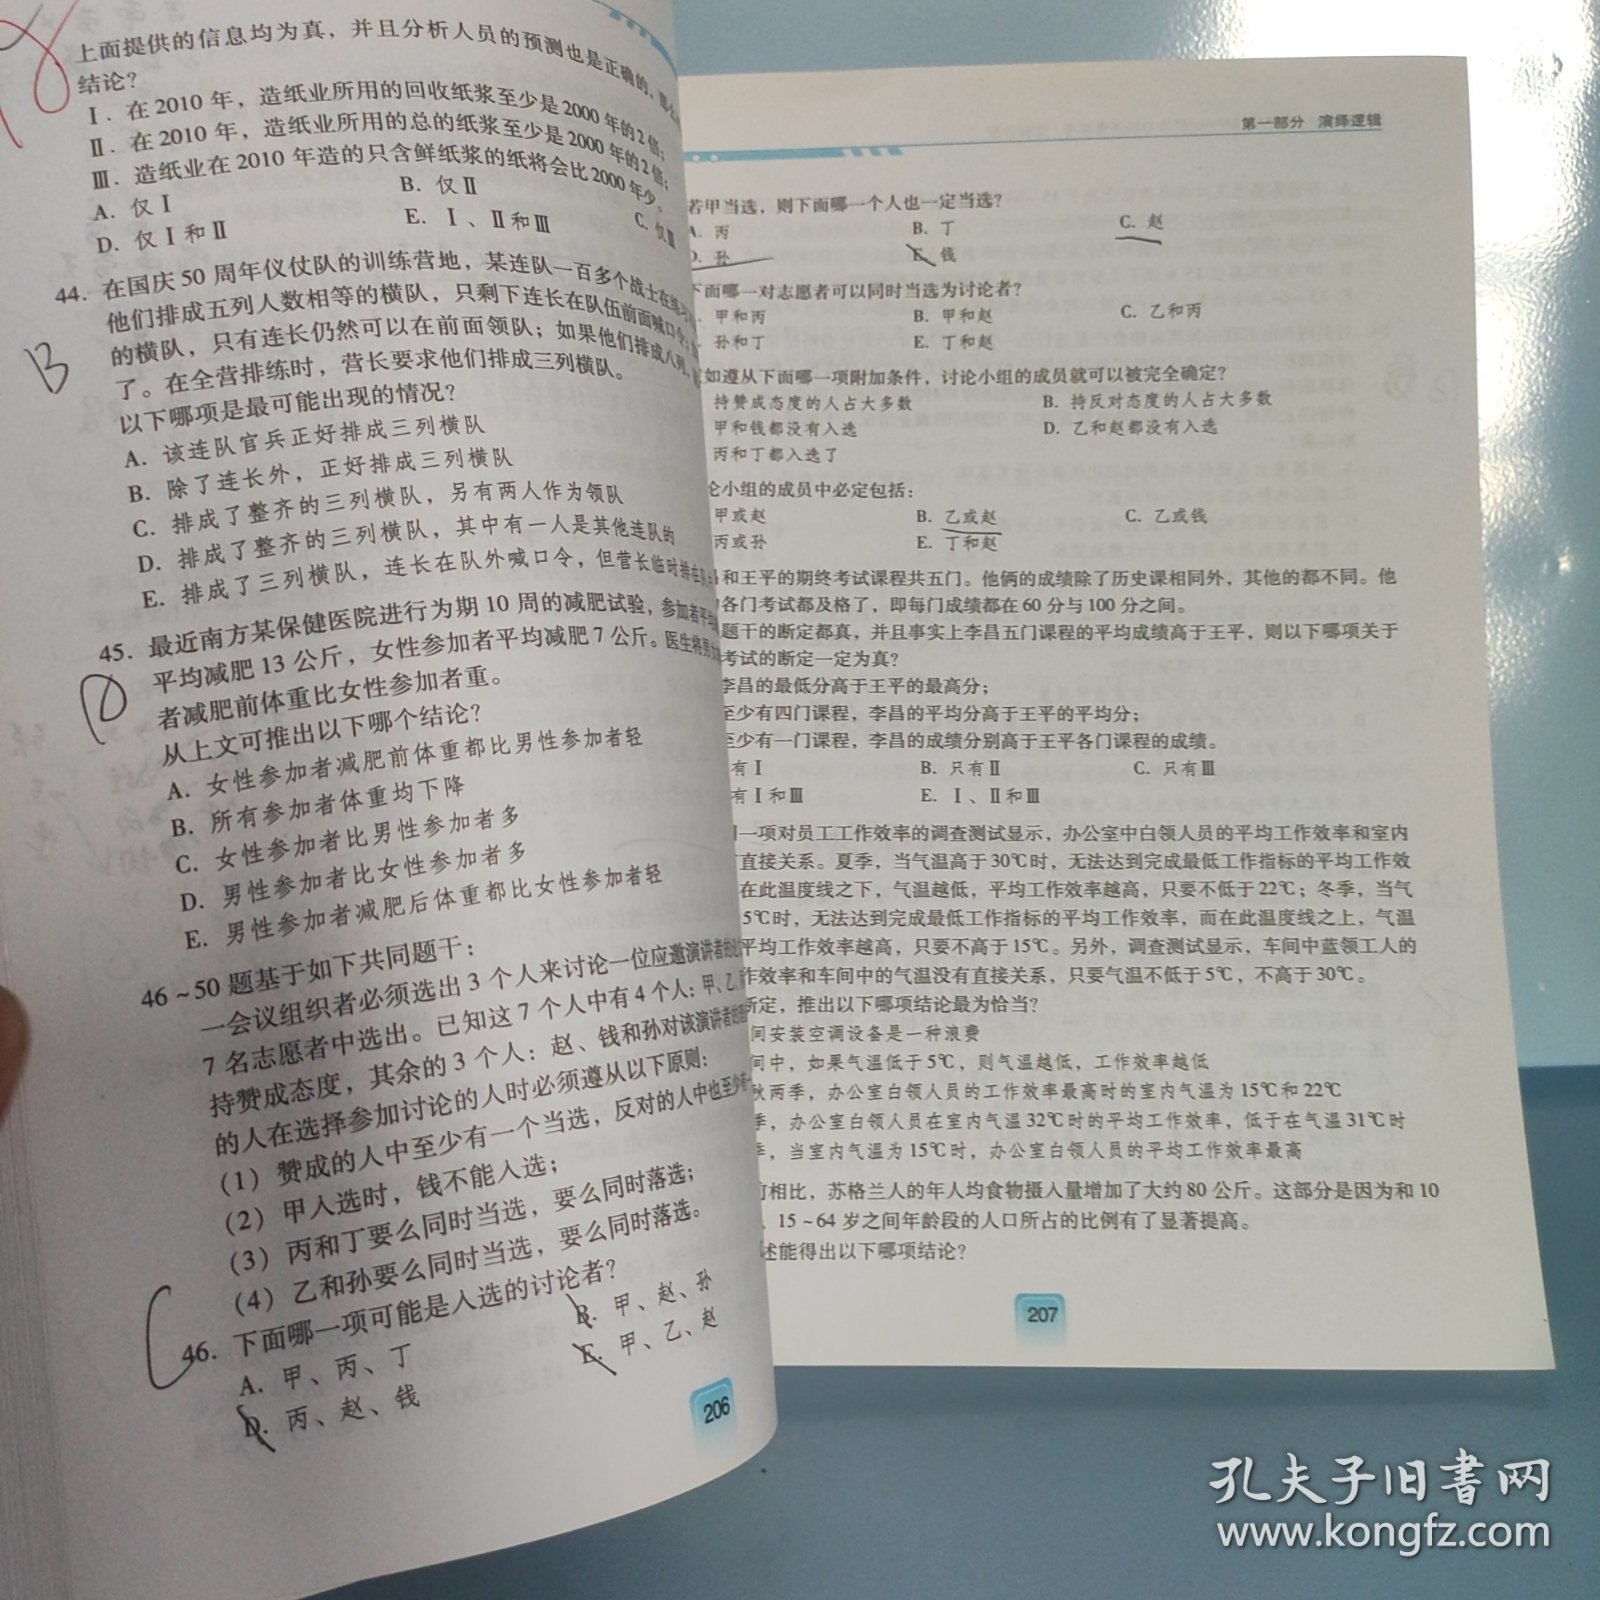 上面提供的信息均为真，并且分析人员的预测也是正确的，那么
结论？
Ⅰ．在2010年，造纸业所用的回收纸浆至少是2000年的2倍；
Ⅱ．在2010年，造纸业所用的总的纸浆至少是2000年的2倍；
Ⅲ．造纸业在2010年造的只含鲜纸浆的纸将会比2000年少。
A．仅Ⅰ B．仅Ⅱ C．仅Ⅲ
D．仅Ⅰ和Ⅱ E．Ⅰ、Ⅱ和Ⅲ
44．在国庆50周年仪仗队的训练营地，某连队一百多个战士在练习
他们排成五列人数相等的横队，只剩下连长在队伍前面喊口令；
的横队，只有连长仍然可以在前面领队；如果他们排成八列，
了。在全营排练时，营长要求他们排成三列横队。
B
以下哪项是最可能出现的情况？
A．该连队官兵正好排成三列横队
B．除了连长外，正好排成三列横队
C．排成了整齐的三列横队，另有两人作为领队
D．排成了整齐的三列横队，其中有一人是其他连队的
E．排成了三列横队，连长在队外喊口令，但营长临时排在队
45．最近南方某保健医院进行为期10周的减肥试验，参加者平均
平均减肥13公斤，女性参加者平均减肥7公斤。医生将男
者减肥前体重比女性参加者重。
D
从上文可推出以下哪个结论？
A．女性参加者减肥前体重都比男性参加者轻
B．所有参加者体重均下降
C．女性参加者比男性参加者多
D．男性参加者比女性参加者多
E．男性参加者减肥后体重都比女性参加者轻
46～50题基于如下共同题干：
一会议组织者必须选出3个人来讨论一位应邀演讲者的
7名志愿者中选出。已知这7个人中有4个人：甲、乙、
持赞成态度，其余的3个人：赵、钱和孙对该演讲者
的人在选择参加讨论的人时必须遵从以下原则：
（1）赞成的人中至少有一个当选，反对的人中也至少有
（2）甲入选时，钱不能入选；
（3）丙和丁要么同时当选，要么同时落选；
（4）乙和孙要么同时当选，要么同时落选。
46．下面哪一项可能是入选的讨论者？
A．甲、丙、丁 B．甲、赵、孙
C
D．丙、赵、钱 E．甲、乙、赵
206
第一部分 演绎逻辑
若甲当选，则下面哪一个人也一定当选？
A．丙 B．丁 C．赵
D．孙 E．钱
下面哪一对志愿者可以同时当选为讨论者？
甲和丙 B．甲和赵 C．乙和丙
孙和丁 E．丁和赵
如遵从下面哪一项附加条件，讨论小组的成员就可以被完全确定？
持赞成态度的人占大多数 B．持反对态度的人占大多数
甲和钱都没有入选 D．乙和赵都没有入选
丙和丁都入选了
论小组的成员中必定包括：
甲或赵 B．乙或赵 C．乙或钱
丙或孙 E．丁和赵
和王平的期终考试课程共五门。他俩的成绩除了历史课相同外，其他的都不同。他
各门考试都及格了，即每门成绩都在60分与100分之间。
题干的断定都真，并且事实上李昌五门课程的平均成绩高于王平，则以下哪项关于
考试的断定一定为真？
李昌的最低分高于王平的最高分；
至少有四门课程，李昌的平均分高于王平的平均分；
至少有一门课程，李昌的成绩分别高于王平各门课程的成绩。
有Ⅰ B．只有Ⅱ C．只有Ⅲ
有Ⅰ和Ⅲ E．Ⅰ、Ⅱ和Ⅲ
一项对员工工作效率的调查测试显示，办公室中白领人员的平均工作效率和室内
直接关系。夏季，当气温高于30℃时，无法达到完成最低工作指标的平均工作效
在此温度线之下，气温越低，平均工作效率越高，只要不低于22℃；冬季，当气
5℃时，无法达到完成最低工作指标的平均工作效率，而在此温度线之上，气温
平均工作效率越高，只要不高于15℃。另外，调查测试显示，车间中蓝领工人的
作效率和车间中的气温没有直接关系，只要气温不低于5℃，不高于30℃。
断定，推出以下哪项结论最为恰当？
间安装空调设备是一种浪费
间中，如果气温低于5℃，则气温越低，工作效率越低
秋两季，办公室白领人员的工作效率最高时的室内气温为15℃和22℃
季，办公室白领人员在室内气温32℃时的平均工作效率，低于在气温31℃时
季，当室内气温为15℃时，办公室白领人员的平均工作效率最高
前相比，苏格兰人的年人均食物摄入量增加了大约80公斤。这部分是因为和10
15～64岁之间年龄段的人口所占的比例有了显著提高。
述能得出以下哪项结论？
207
孔夫子旧书网
www.kongfz.com